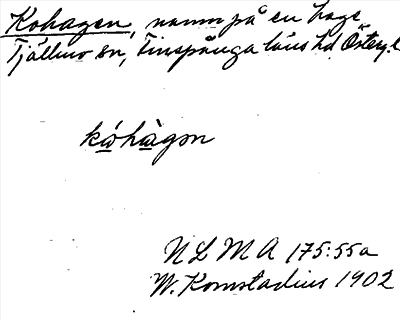 Kohagen, namn på en hage
Tjällmo sn, Finspånga läns hd Österg.l
kóhàgən
NLMA 175:55a
W. Komstadius 1902